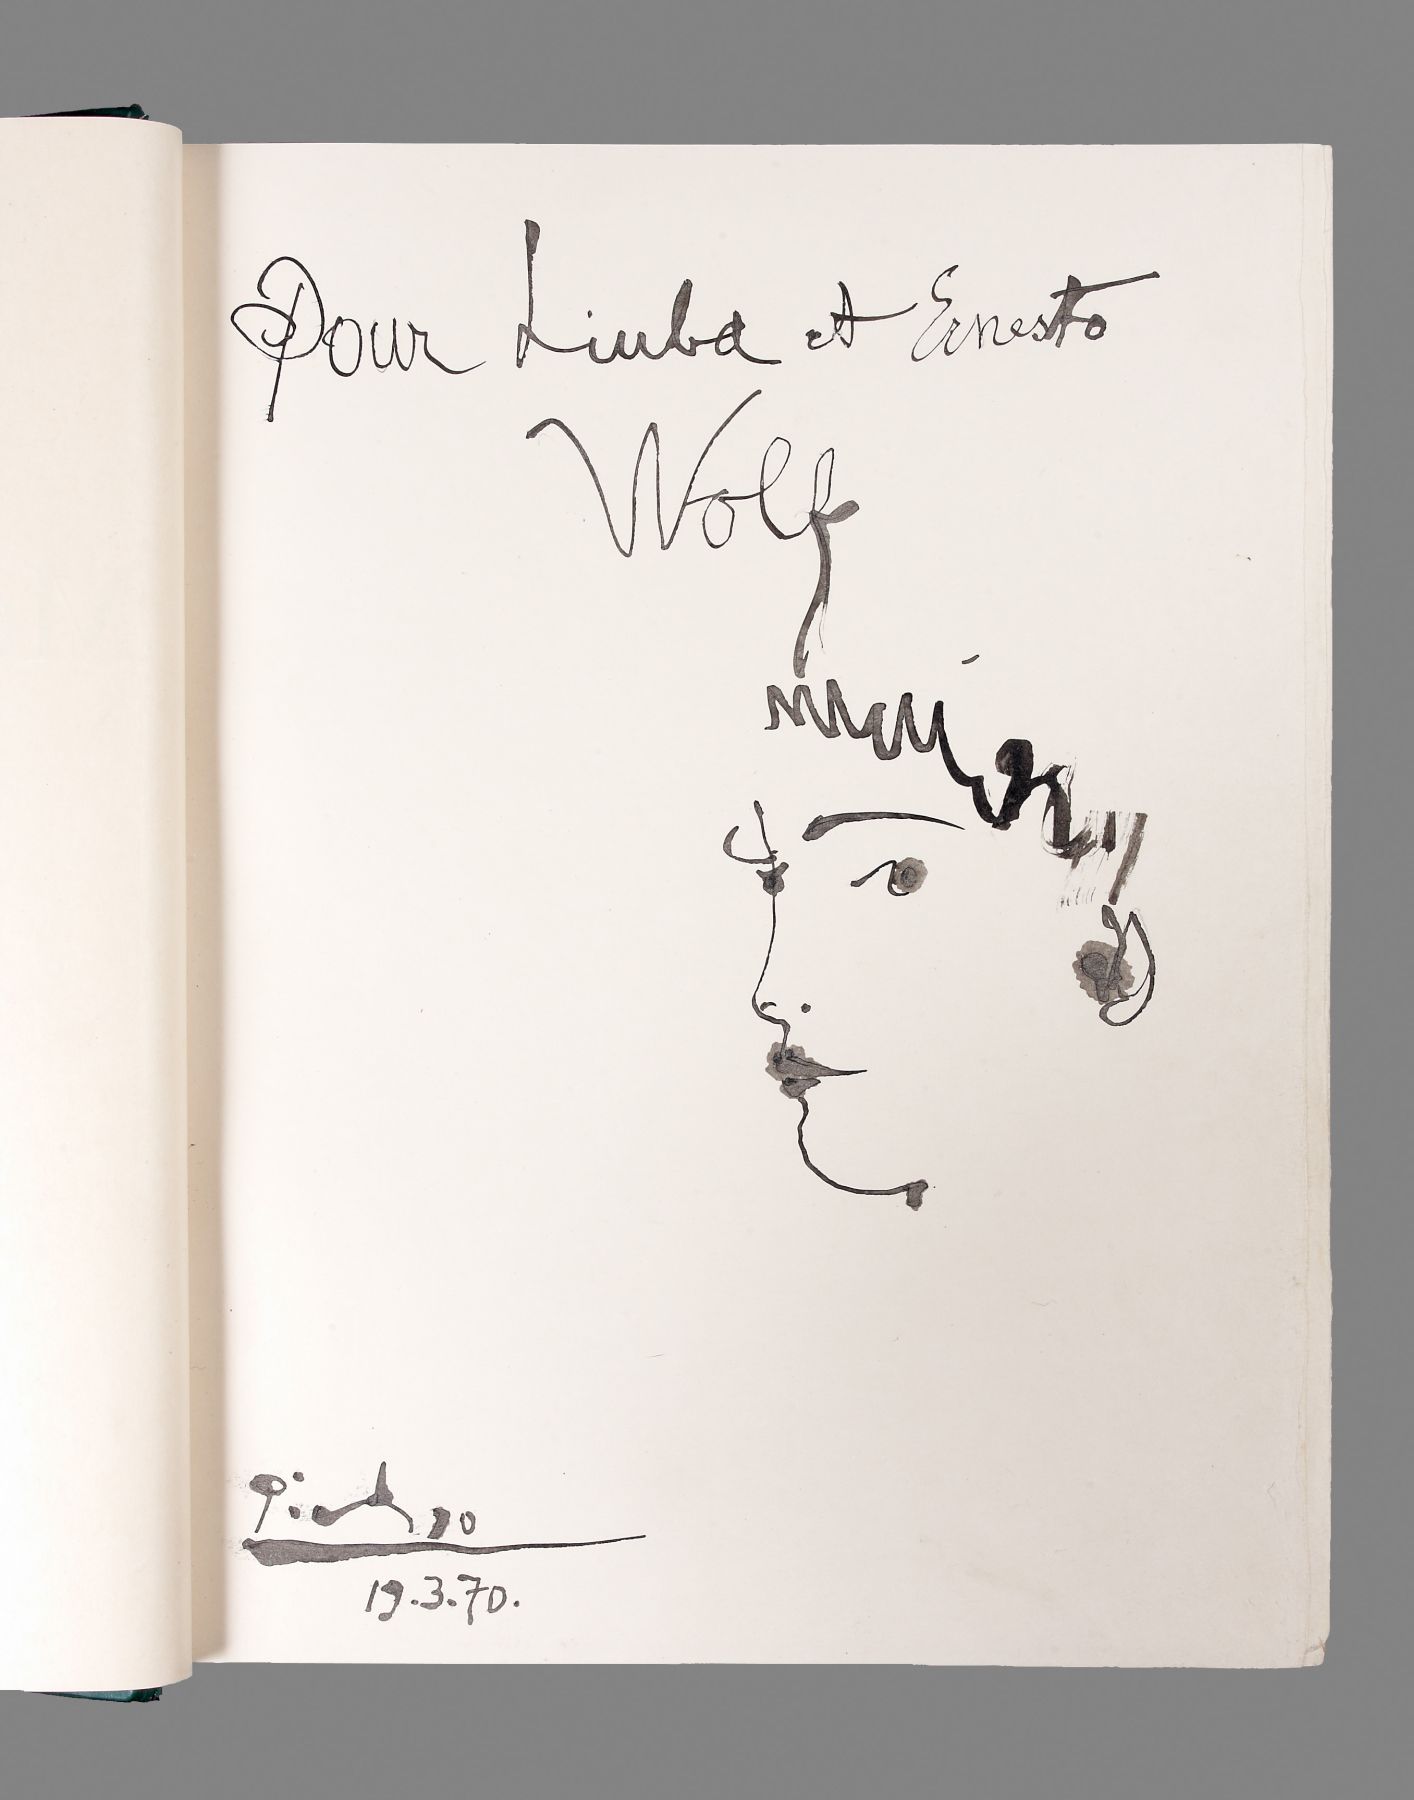 Pour Liuba et Ernesto
Wolf
Picasso
19.3.70.